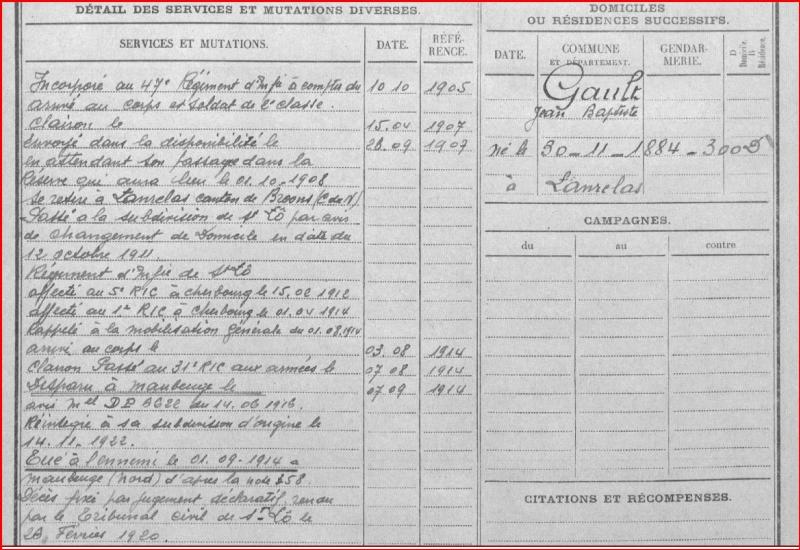 DÉTAIL DES SERVICES ET MUTATIONS DIVERSES.
SERVICES ET MUTATIONS. DATE. RÉFÉRENCE.
Incorporé au 47e Régiment d'Infie à compter du 10 10 1905
arrivé au corps et soldat de 2e classe.
Clairon le 15.04 1907
Envoyé dans la disponibilité le 28.09 1907
en attendant son passage dans la
Réserve qui aura lieu le 01.10.1908
se retire à Lanrelas canton de Broons (C du N)
Passé à la subdivision de St Lô par avis
de changement de Domicile en date du
12 octobre 1911.
Régiment d'Infie de St Lô
affecté au 5e RIC à Cherbourg le 15.02 1912
affecté au 1er RIC à Cherbourg le 01.04 1914
Rappelé à la mobilisation Générale du 01.08.1914
arrivé au corps le 03.08 1914
Clairon Passé au 31e RIC aux armées le 07 08 1914
Disparu à maubeuge le 07.09 1914
avis mel DP 14.06 1916.
Réintégré à sa subdivision d'origine le
14.11.1922.
Tué à l'ennemi le 01.09.1914 a
maubeuge (Nord) d'après la note 258.
Décès fixé par jugement déclaratif rendu
par le Tribunal civil de St Lô le
Février 1920.
DOMICILES
OU RÉSIDENCES SUCCESSIFS.
DATE. COMMUNE ET DÉPARTEMENT. GENDARMERIE. D Domicile. R Résidence.
Gault
Jean Baptiste
né le 30_11_1884
à Lanrelas
CAMPAGNES.
du au contre
CITATIONS ET RÉCOMPENSES.